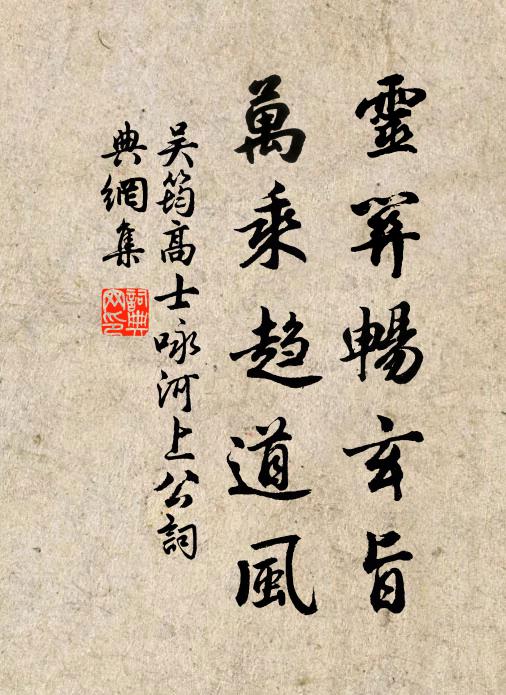 靈關暢玄旨
萬乘趨道風
吴筠高士咏河上公詞
典網集
詞典
网印